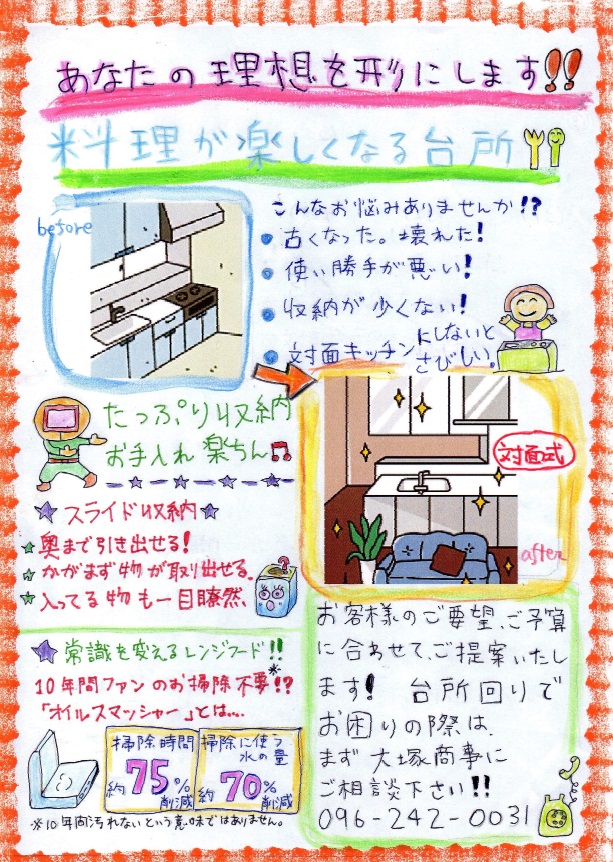 あなたの理想を形にします!!
料理が楽しくなる台所
before
こんなお悩みありませんか!?
古くなった。壊れた!
使い勝手が悪い!
収納が少くない!
対面キッチンにしないとさびしい。
たっぷり収納
お手入れ楽ちん♫
対面式
after
★スライド収納★
★奥まで引き出せる!
★かがまず物が取り出せる。
★入ってる物も一目瞭然、
★常識を変えるレンジフード!!
10年間ファンのお掃除不要*!?
「オイルスマッシャー」とは....
掃除時間
約75%削減
掃除に使う水の量
約70%削減
※10年間汚れないという意味ではありません。
お客様のご要望、ご予算
に合わせて、ご提案いたし
ます! 台所回りで
お困りの際は、
まず大塚商事に
ご相談下さい!!
096-242-0031